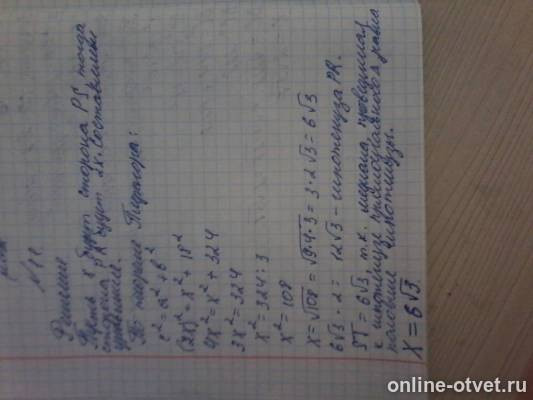 Решение
Пусть x будет сторона PS, тогда
сторона PR будет 2x. Составляем
уравнение.
По теореме Пифагора:
c² = a² + b²
(2x)² = x² + 18²
4x² = x² + 324
3x² = 324
x² = 324 : 3
x² = 108
x = √108 = √9·4·3 = 3·2√3 = 6√3
6√3 · 2 = 12√3 - гипотенуза PR.
ST = 6√3, т.к. медиана, проведенная
к гипотенузе прямоугольного △ равна
половине гипотенузы.
x = 6√3
online-otvet.ru